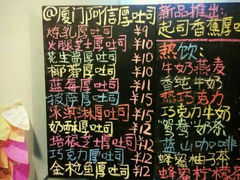 @厦门阿信厚吐司
炼乳厚吐司 ¥9
火腿芝士厚吐司 ¥10
花生酱厚吐司 ¥10
椰蓉厚吐司 ¥10
蓝莓厚吐司 ¥11
披萨厚吐司 ¥15
冰淇淋厚吐司 ¥15
奶酥厚吐司 ¥12
培根芝士厚吐司 ¥12
巧克力厚吐司 ¥12
金枪鱼厚吐司 ¥12
新品推出:
起司香蕉厚
热饮:
牛奶燕麦
香纯牛奶
热巧克力
巧克力牛奶
鸳鸯奶茶
蓝山咖啡
蜂蜜柚子茶
蜂蜜柠檬茶